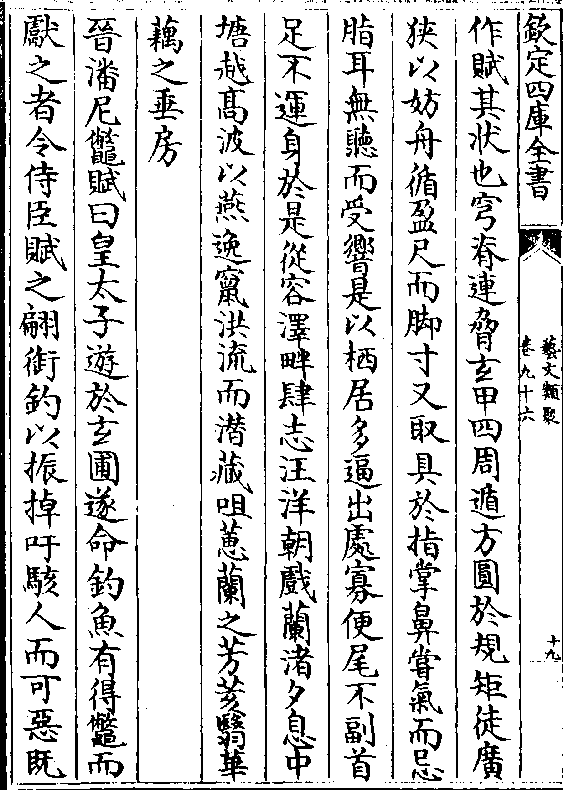 欽定四庫全書
藝文類聚
卷九十六
十九
作賦其狀也穹脊連脅玄甲四周遁方圓於規矩徒廣
狹以妨舟循盈尺而脚寸又取具於指掌鼻嘗氣而忌
脂耳無聽而受響是以栖居多逼出處寡便尾不副首
足不運身於是從容澤畔肆志汪洋朝戲蘭渚夕息中
塘越高波以燕逸竄洪流而潛藏咀蕙蘭之芳荄翳華
藕之垂房
晉潘尼鼈賦曰皇太子遊於玄圃遂命釣魚有得鼈而
獻之者令侍臣賦之翩銜釣以振掉吁駭人而可惡既